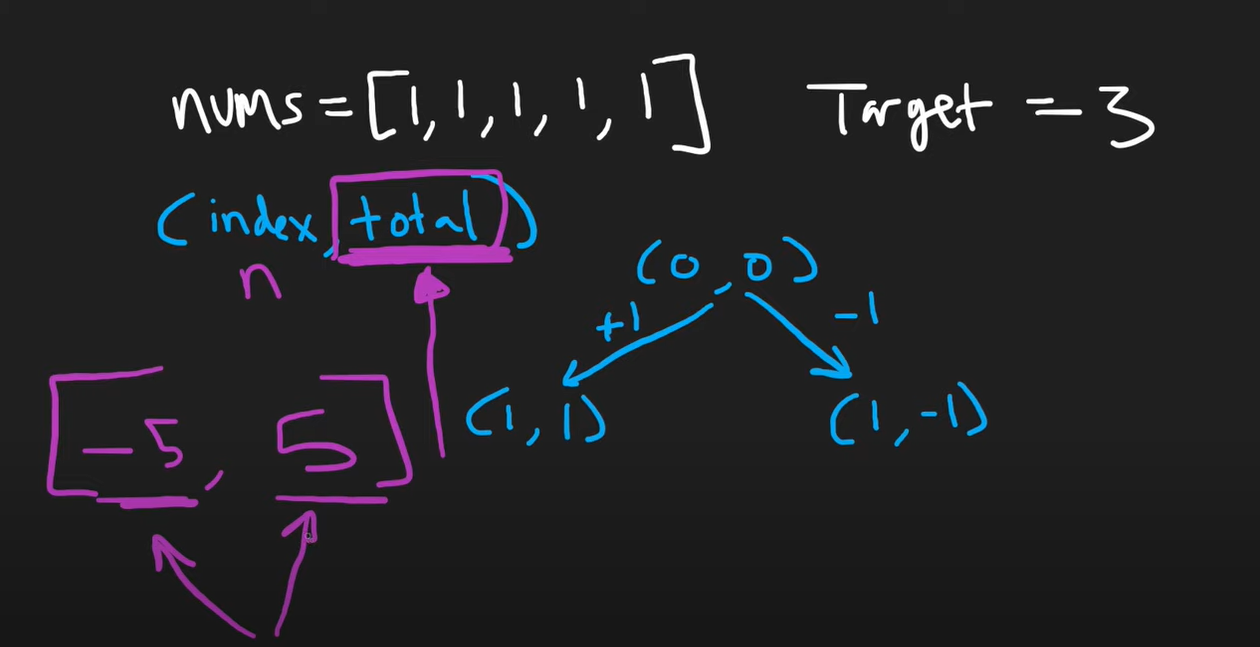 nums = [1, 1, 1, 1, 1] Target = 3
(index, total)
n
(0, 0)
+1 -1
(1, 1) (1, -1)
[-5, 5]